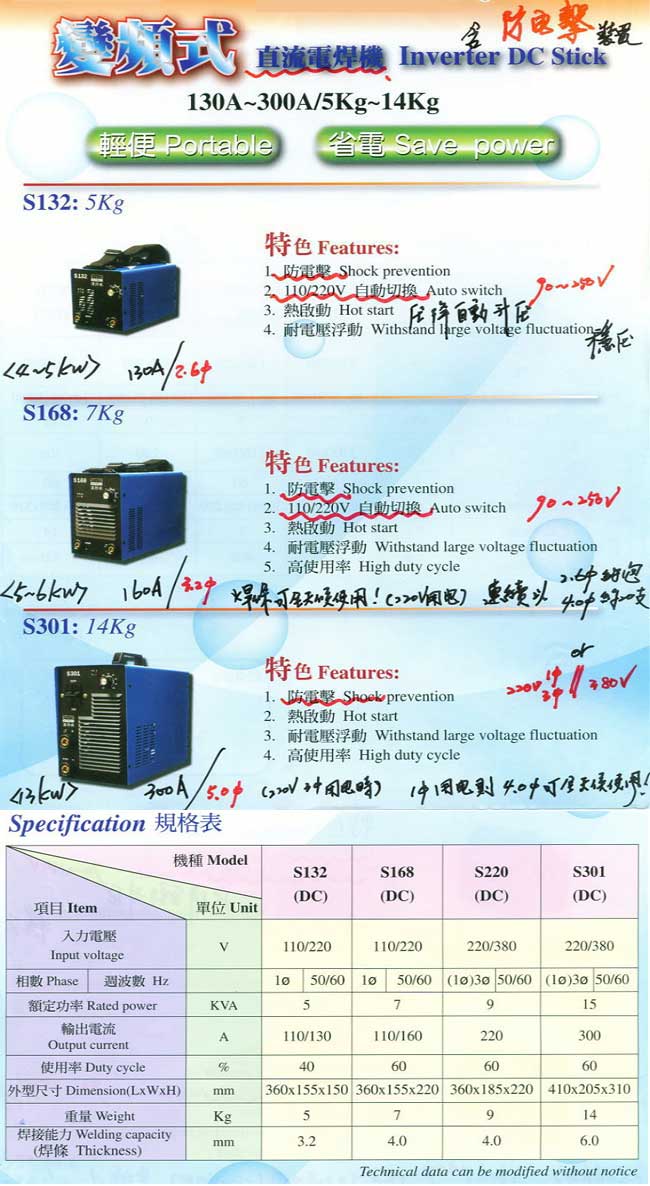 變頻式 直流電焊機 Inverter DC Stick
含 防电擊 裝置
130A~300A/5Kg~14Kg
輕便 Portable 省電 Save power
S132: 5Kg
S132
特色 Features:
1. 防電擊 Shock prevention
2. 110/220V 自動切換 Auto switch 90~250V
3. 熱啟動 Hot start 压降自動升压
4. 耐電壓浮動 Withstand large voltage fluctuation 穩压
<4~5kw> 130A/2.6φ
S168: 7Kg
S168
特色 Features:
1. 防電擊 Shock prevention
2. 110/220V 自動切換 Auto switch 90~250V
3. 熱啟動 Hot start
4. 耐電壓浮動 Withstand large voltage fluctuation
5. 高使用率 High duty cycle
<5~6kw> 160A/3.2φ 焊條可全天候使用!(220V用电) 連續以 2.6φ 4.0φ 約20支
S301: 14Kg
S301
特色 Features:
1. 防電擊 Shock prevention 220V 1φ 3φ or 380V
2. 熱啟動 Hot start
3. 耐電壓浮動 Withstand large voltage fluctuation
4. 高使用率 High duty cycle
<13kw> 300A/5.0φ (220V 3φ用电時) 1φ用电則 4.0φ可全天候使用!
Specification 規格表
項目 Item 機種 Model 單位 Unit S132 (DC) S168 (DC) S220 (DC) S301 (DC)
入力電壓 Input voltage V 110/220 110/220 220/380 220/380
相數 Phase 週波數 Hz 1ø 50/60 1ø 50/60 (1ø)3ø 50/60 (1ø)3ø 50/60
額定功率 Rated power KVA 5 7 9 15
輸出電流 Output current A 110/130 110/160 220 300
使用率 Duty cycle % 40 60 60 60
外型尺寸 Dimension(LxWxH) mm 360x155x150 360x155x220 360x185x220 410x205x310
重量 Weight Kg 5 7 9 14
焊接能力 Welding capacity (焊條 Thickness) mm 3.2 4.0 4.0 6.0
Technical data can be modified without notice